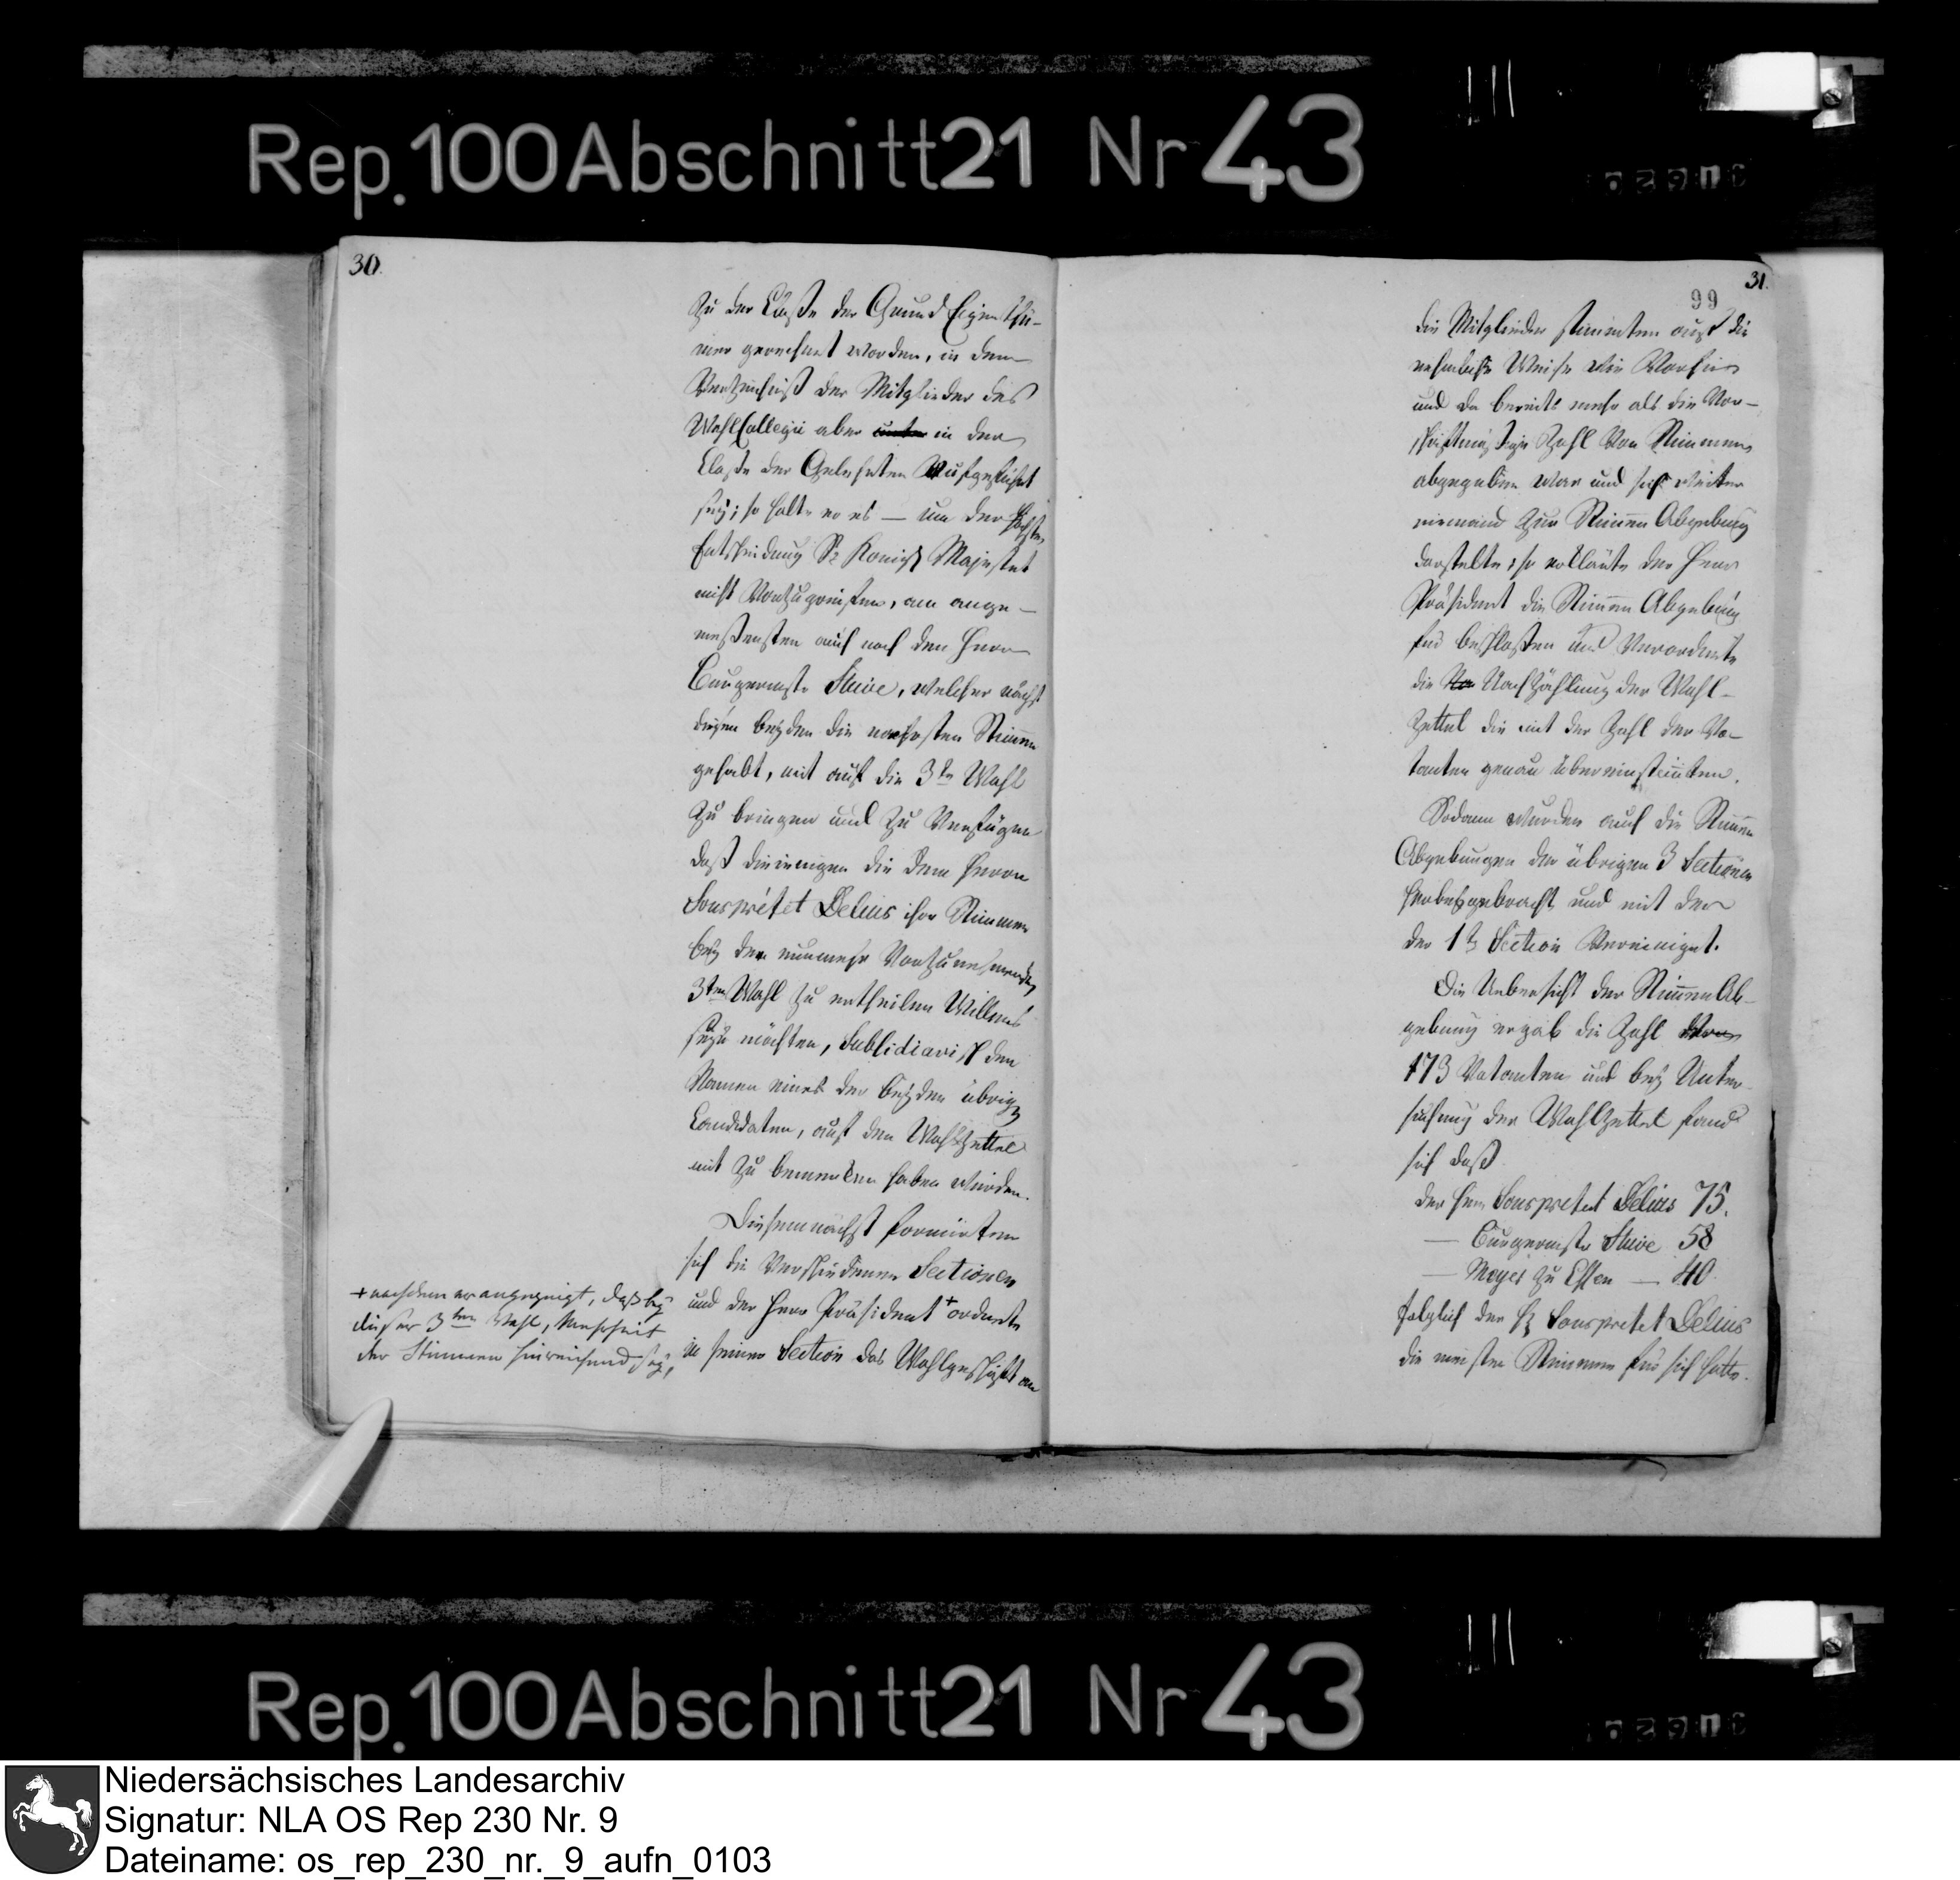 Rep. 100 Abschnitt 21 Nr 43
30.
zu der Claße der Grund Eigenthü-
mer gerechnet worden, in dem
Verzeichniß der Mitglieder des
WahlCollegii aber unter in der
Claße der Gelehrten Aufgeführt
sey; so halte er es — um der höchsten
Entscheidung Sr Königl Majestät
nicht Vorzugreifen, am ange-
meßensten auch noch den Herrn
Burgermstr Stüve, welcher nächst
diesen beyden die mehrsten Stimmen
gehabt, mit auf die 3te Wahl
zu bringen und zu Verfügen
daß diejenigen die dem Herrn
Souspréfet Delius ihre Stimmen
bey der nunmehr Vorzunehmenden
3ten Wahl zu ertheilen Willens
seyn möchten, Subsidiarisch den
Namen eines der beyden übrigen
Candidaten, auf den Wahlzettel
mit zu bemerken haben würden.
Diesemnächst formirten
sich die Verschiedenen Sectionen
und der Herr Präsident + ordnete
in seiner Section das Wahlgeschäft an
+ nachdem er angezeigt, daß bey
dieser 3ten Wahl, Mehrheit
der Stimmen hinreichend sey,
31.
99
die Mitglieder stimmten auf die
nehmliche Weise wie Vorhin
und da bereits mehr als die Vor-
schriftmäßige Zahl Von Stimmen
abgegeben war und sich weiter
niemand zur Stimmen Abgebung
darstelte, so erklärte der Herr
Präsident die Stimmen Abgebung
für beschloßen und Verordnete
die Na Nachzählung der Wahl-
zettel die mit der Zahl der Vo-
tanten genau übereinstimten.
Sodann wurden auch die Stimmen
Abgebungen der übrigen 3 Sectionen
herbeygebracht und mit der
der 1ten Section Vereiniget.
Die Uebersicht der StimmenAb-
gebung ergab die Zahl Von
173 Votanten und bey Unter-
suchung der Wahlzettel fand
sich daß
der Herr Souspréfet Delius 75.
— Burgermstr Stüve 58
— Meyer zu Essen — 40.
folglich der Hr Souspréfet Delius
die meisten Stimmen für sich hatte.
Rep. 100 Abschnitt 21 Nr 43
Niedersächsisches Landesarchiv
Signatur: NLA OS Rep 230 Nr. 9
Dateiname: os_rep_230_nr._9_aufn_0103